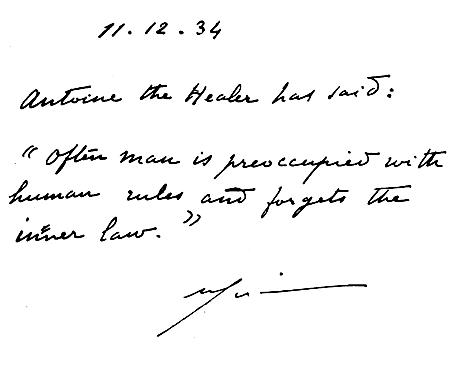 11.12.34
Antoine the Healer has said:
"Often man is preoccupied with
human rules and forgets the
inner law."